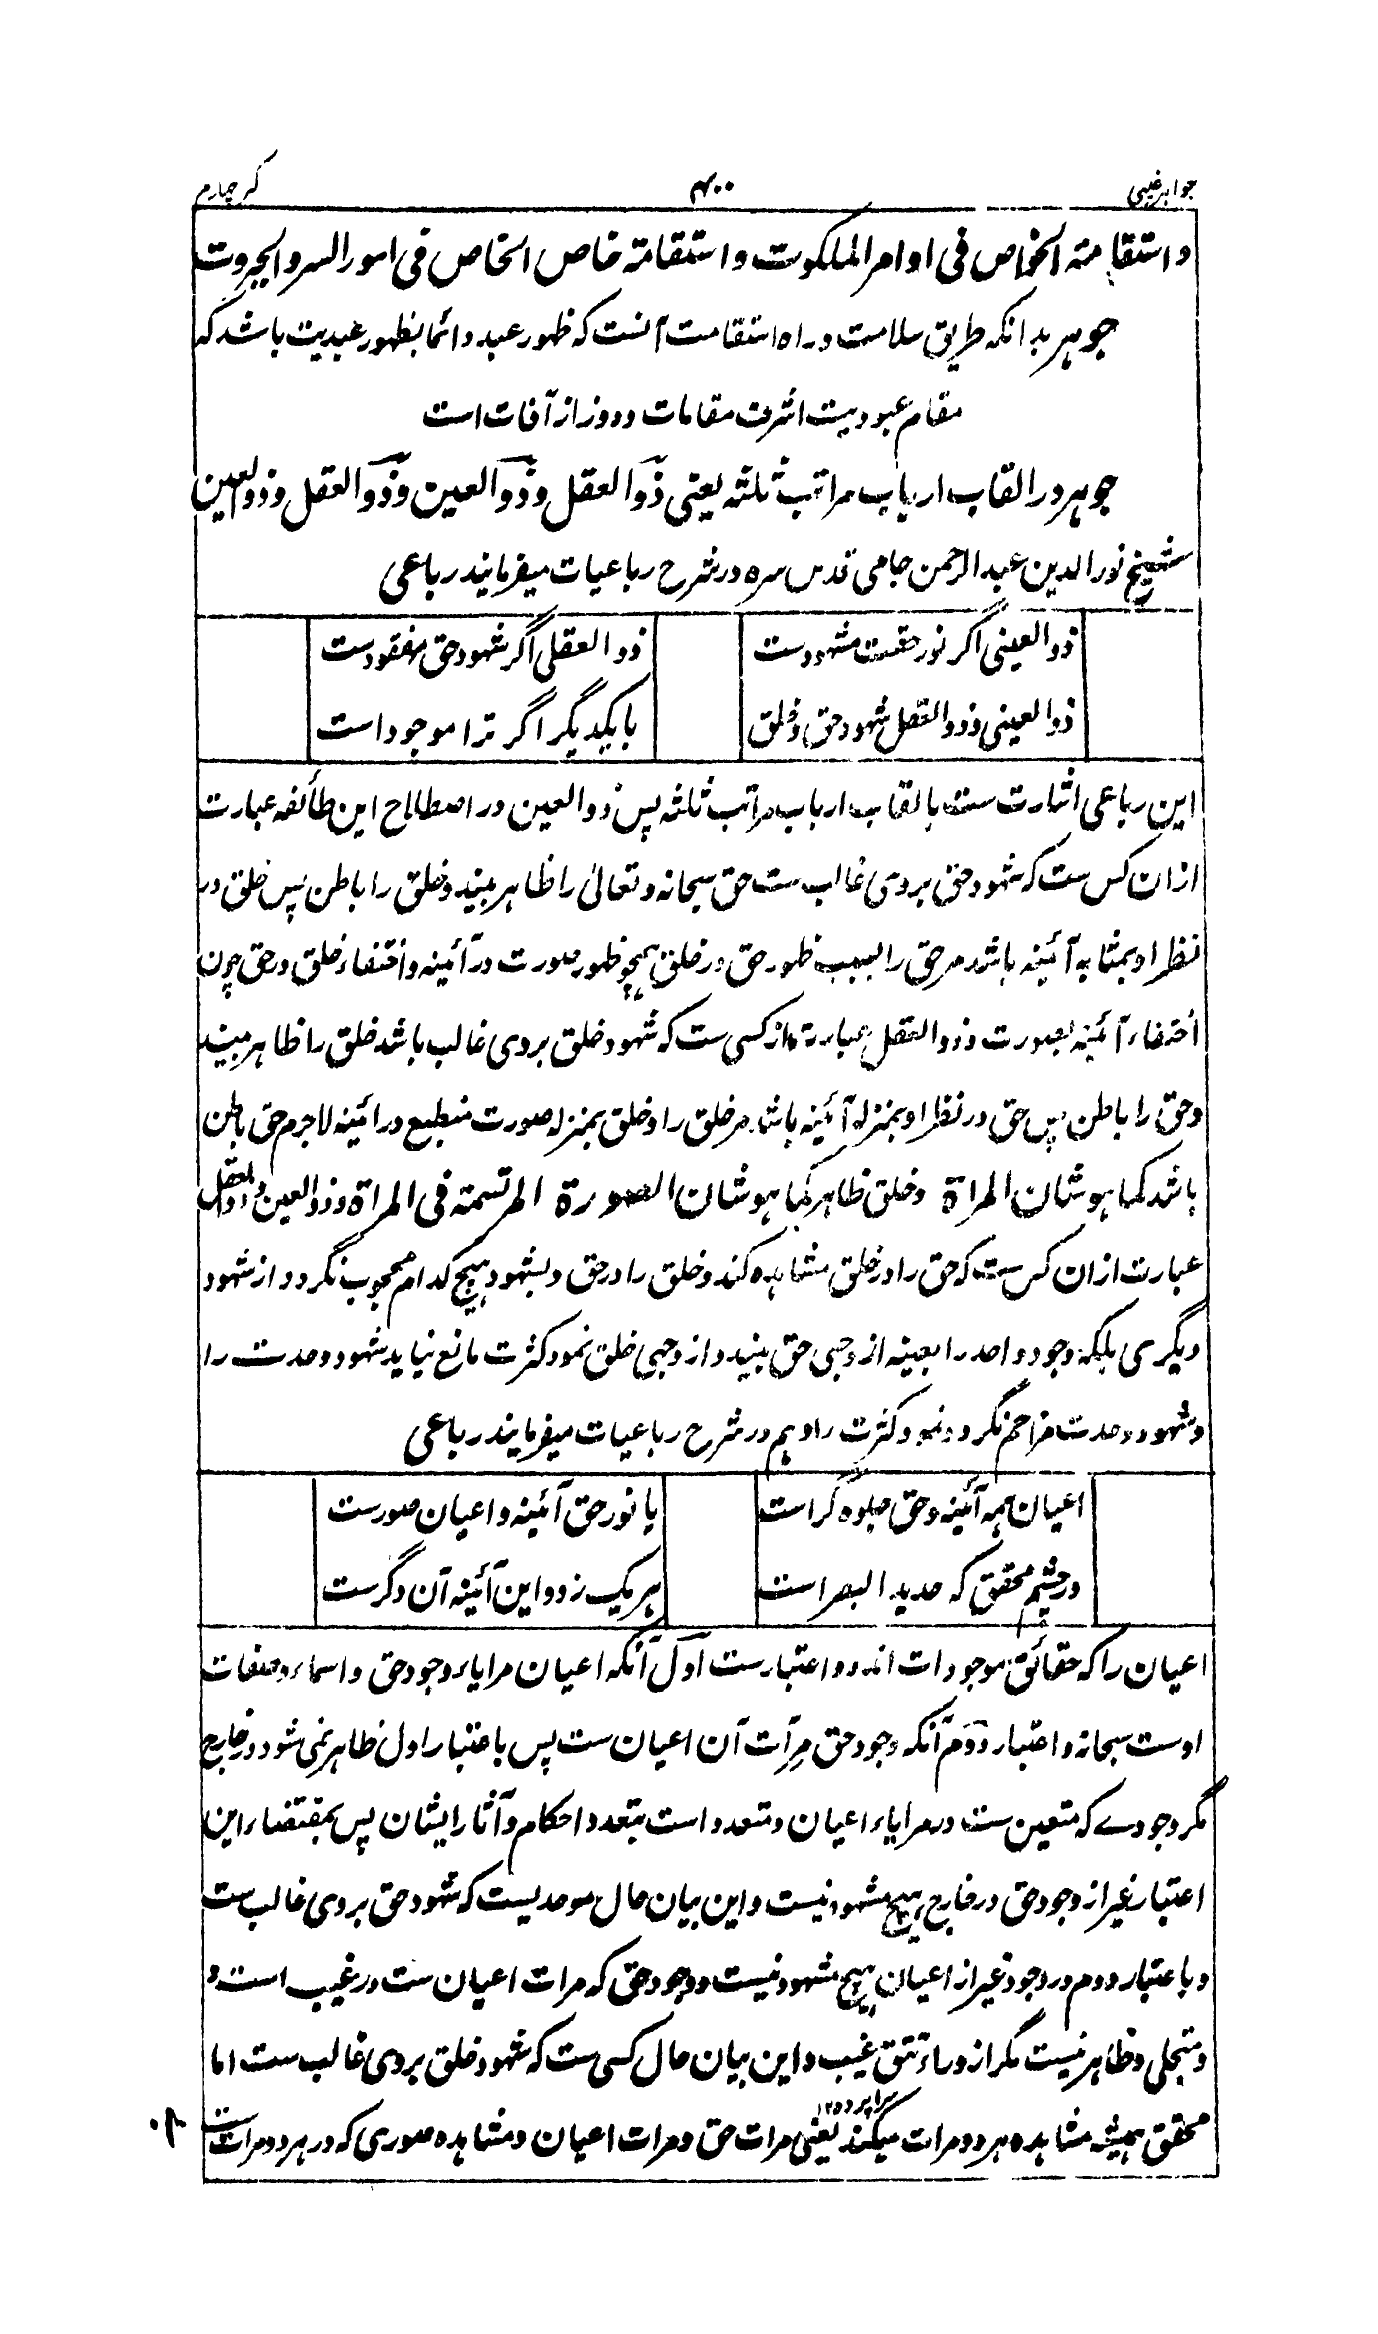 جواهر غیبی
۴۰۰
کنز چهارم
و استقامة الخواص فی اوامر الملکوت و استقامة خاص الخاص فی امور السر و الجبروت
جوهر بدانکه طریق سلامت و راه استقامت آنست که ظهور عبد دائما بظهور عبدیت باشد که
مقام عبودیت اشرف مقامات و دور از آفات است
جوهر در القاب ارباب مراتب ثلثه یعنی ذوالعقل و ذوالعین و ذوالعقل و ذوالعین
شیخ نورالدین عبدالرحمن جامی قدس سره در شرح رباعیات میفرمایند رباعی
ذوالعینی اگر نور حقت مشهودست
ذوالعقلی اگر شهود حق مفقودست
ذوالعینی و ذوالعقل شهود حق و خلق
با یکدیگر اگر ترا موجود است
این رباعی اشارت ست بالقاب ارباب مراتب ثلثه پس ذوالعین در اصطلاح این طائفه عبارت
ازان کس ست که شهود حق بروی غالب ست حق سبحانه و تعالی را ظاهر بیند و خلق را باطن پس خلق در
نظر او بمثابه آئینه باشد مر حق را بسبب ظهور حق در خلق همچو ظهور صورت در آئینه و اختفاء خلق در حق چون
اختفاء آئینه بصورت و ذوالعقل عبارة از کسی ست که شهود خلق بروی غالب باشد خلق را ظاهر بیند
و حق را باطن پس حق در نظر او بمنزله آئینه باشد مر خلق را و خلق بمنزله صورت منطبع در ائینه لاجرم حق باطن
باشد کما هو شان المراة و خلق ظاهر کما هو شان الصورة المرتسمة فی المراة و ذوالعین و ذوالعقل
عبارت ازان کس ست که حق را در خلق مشاهده کند و خلق را در حق و بشهود هیچ کدام محجوب نگردد از شهود
دیگری بلکه وجود واحد را بعینه از وجهی حق بیند و از وجهی خلق نمود کثرت مانع نیاید شهود وحدت را
و شهود وحدت مزاحم نگردد نمود کثرت را و هم در شرح رباعیات میفرمایند رباعی
اعیان همه آئینه و حق جلوه گر است
یا نور حق آئینه و اعیان صورست
در چشم محقق که حدید البصر است
هر یک ز دو این آئینه آن دگرست
اعیان را که حقائق موجودات اند دو اعتبارست اول آنکه اعیان مرایاء وجود حق و اسماء و صفات
اوست سبحانه و اعتبار دوم آنکه وجود حق مرآت آن اعیان ست پس باعتبار اول ظاهر نمی شود در خارج
مگر وجودے که متعین ست در مرایاء اعیان و متعدد است بتعدد احکام و آثار ایشان پس بمقتضاء این
اعتبار غیر از وجود حق در خارج هیچ مشهود نیست و این بیان حال موحدیست که شهود حق بروی غالب ست
و باعتبار دوم در وجود غیر از اعیان هیچ مشهود نیست و وجود حق که مرات اعیان ست در غیب است و
و متجلی و ظاهر نیست مگر از وراء تتق غیب و این بیان حال کسی ست که شهود خلق بروی غالب ست اما
سراپرده ۱۲
محقق همیشه مشاهده هر دو مرات میکند یعنی مرات حق و مرات اعیان و مشاهده صوری که در هر دو مرات ست